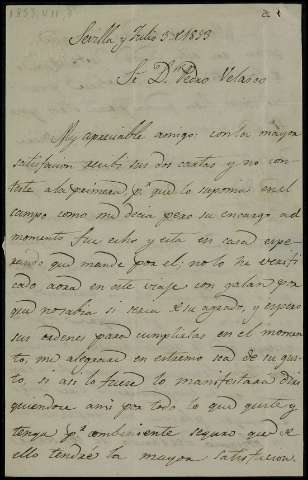 1853, VII, 3
Sevilla y Julio 3 de 1853
Sr Dn Pedro Velasco
My apreciable amigo: con la mayor
satisfacion recibi sus dos cartas y no con
teste a la primera pr que lo suponia en el
campo como me decia pero su encargo al
momento fue echo y esta en casa espe
rando que mande por el; no lo he verifi
cado aora en este viaje con galan por
que no sabia si seria de su agrado, y espero
sus ordenes para cumplirlas en el momen
to, me alegrare en estremo sea de su gus
to, si asi lo fuese lo manifestara
quiendose a mi pa todo lo que guste y
tenga pr combeniente seguro que de
ello tendré la mayor satisfacion.